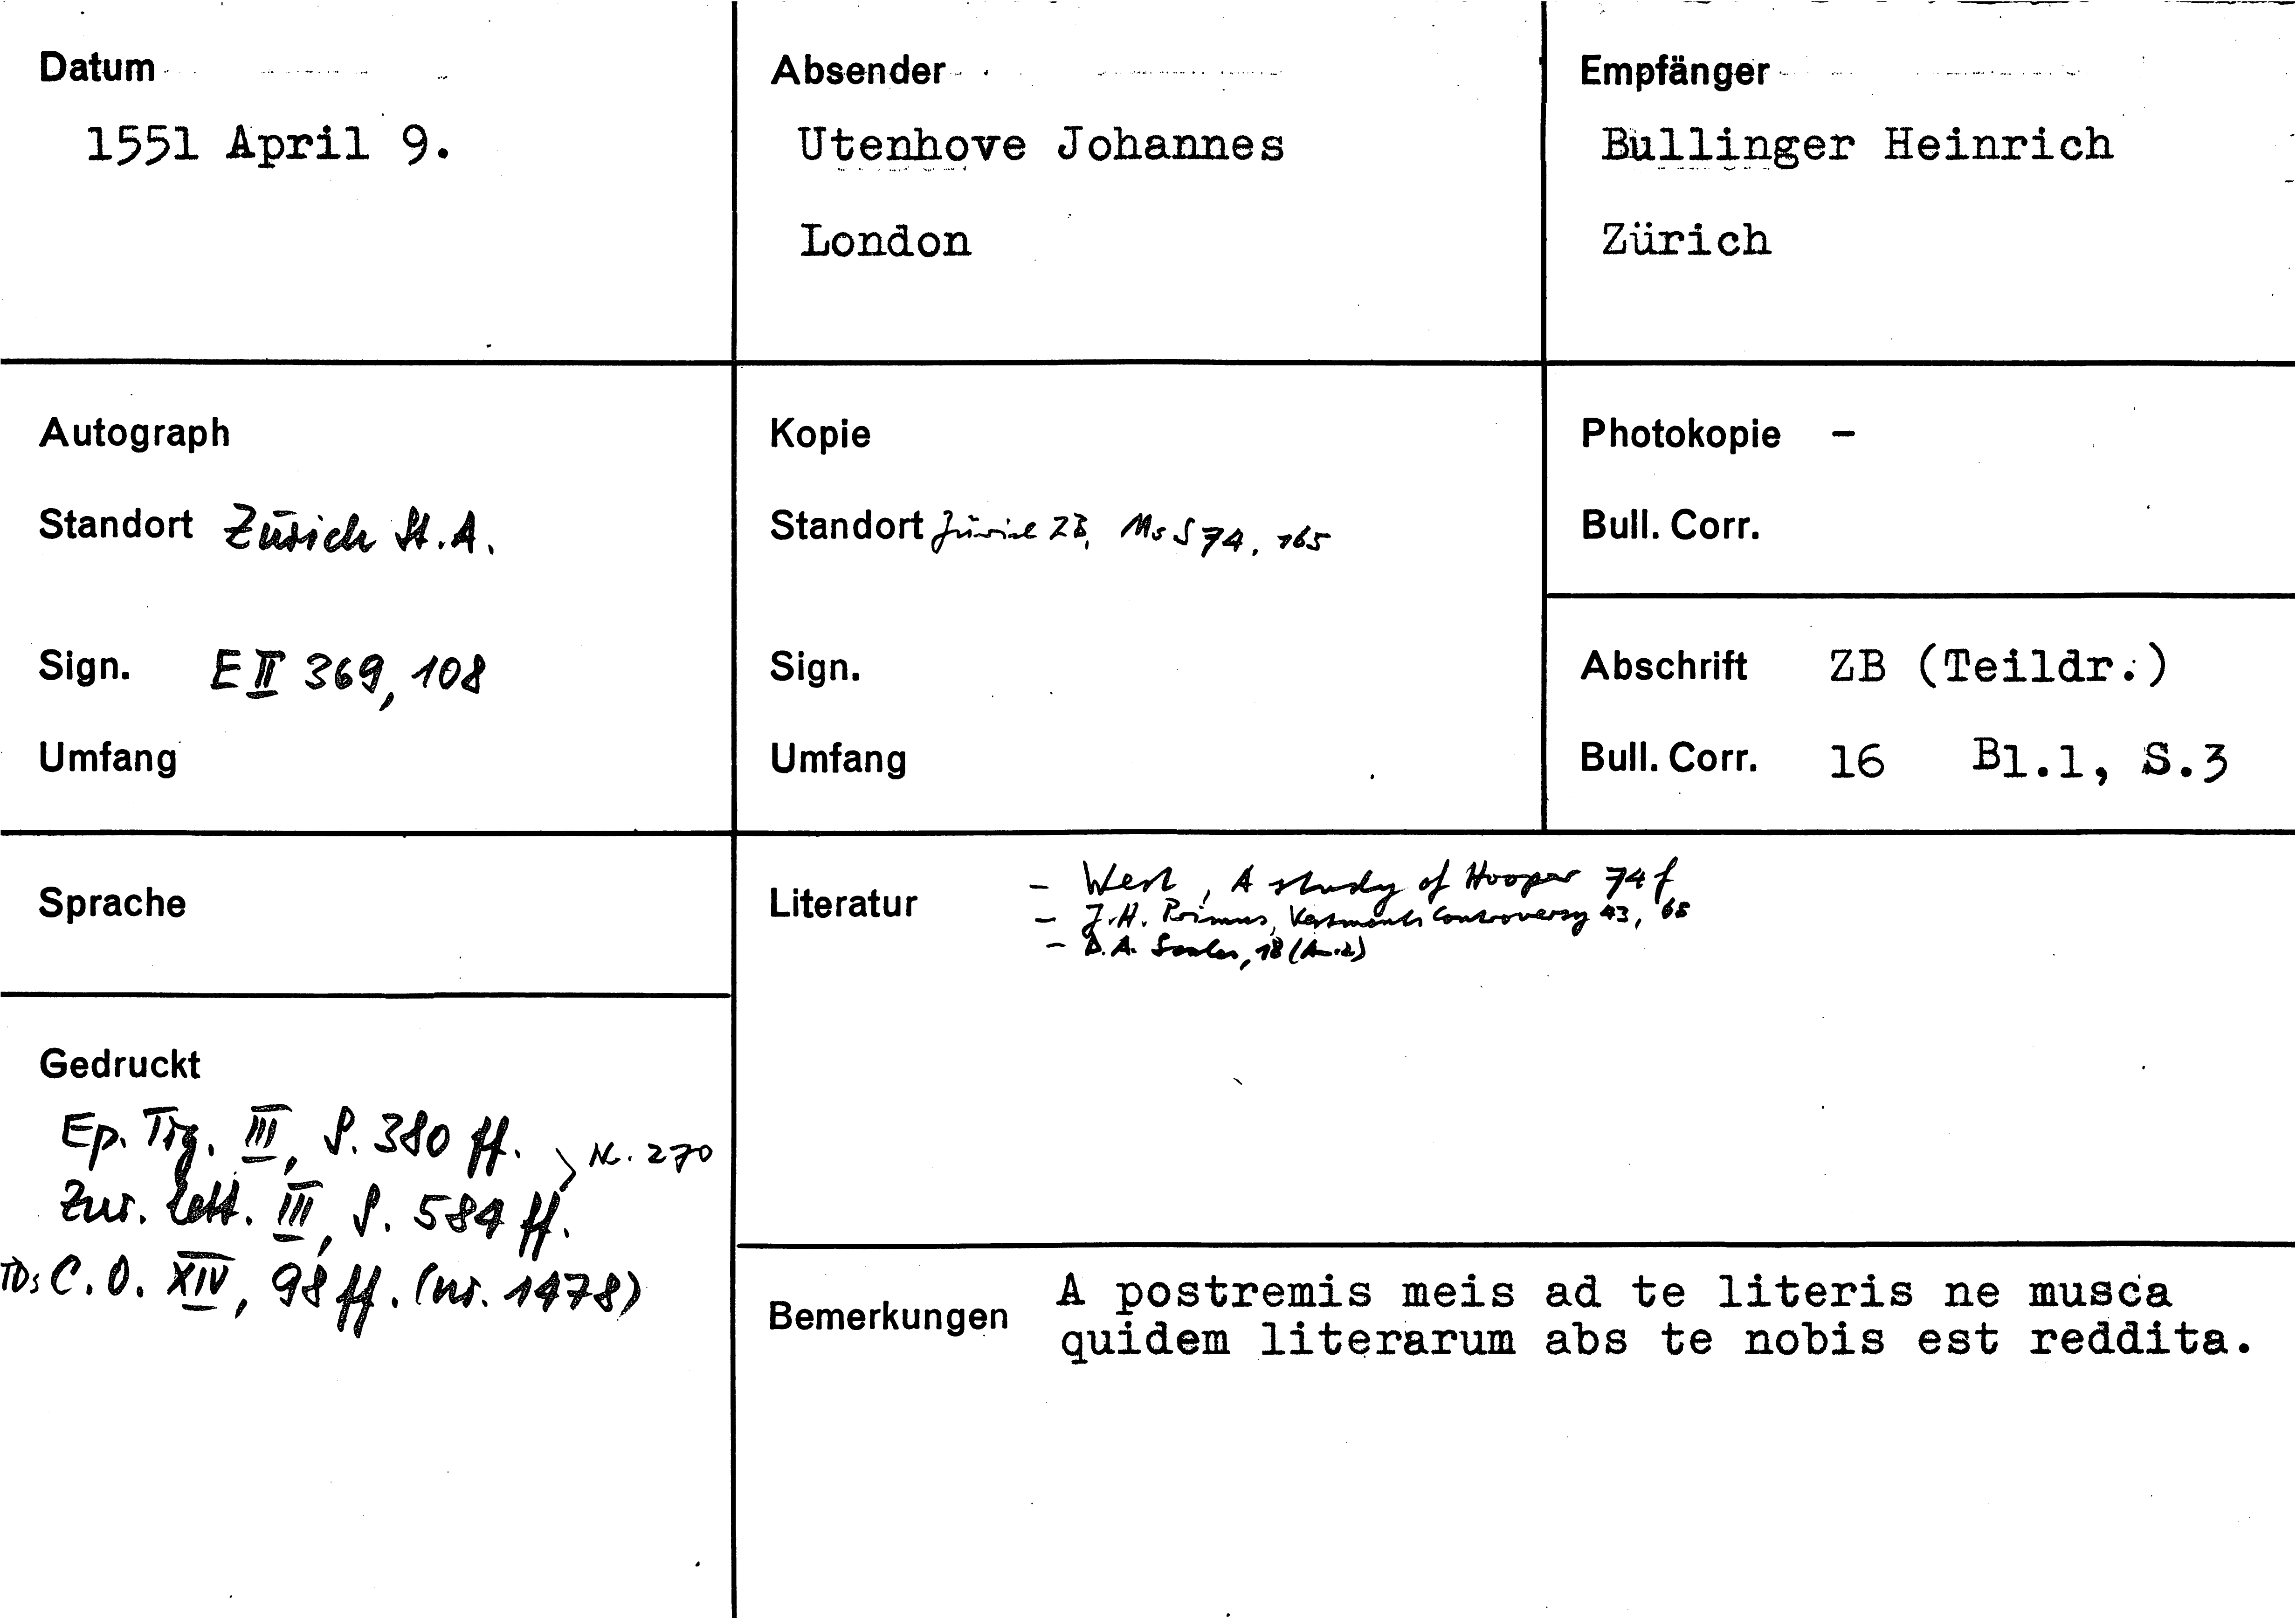 Datum
1551 April 9.
Absender
Utenhove Johannes
London
Empfänger
Bullinger Heinrich
Zürich
Autograph
Standort Zürich St.A.
Sign. E II 369, 108
Umfang
Kopie
Standort Zürich ZB, Ms S 74, 165
Sign.
Umfang
Photokopie -
Bull. Corr.
Abschrift ZB (Teildr.)
Bull. Corr. 16 Bl.1, S.3
Sprache
Literatur
- West, A study of Hooper 74 f
- J.H. Primus, Vestments Controversy 43, 65
- 18
Gedruckt
Ep. Tig. III, S. 380 ff.
Nr. 270
Zur. Lett. III, S. 584 ff.
TD: C.O. XIV, 98 ff. (nr. 1478)
Bemerkungen
A postremis meis ad te literis ne musca
quidem literarum abs te nobis est reddita.